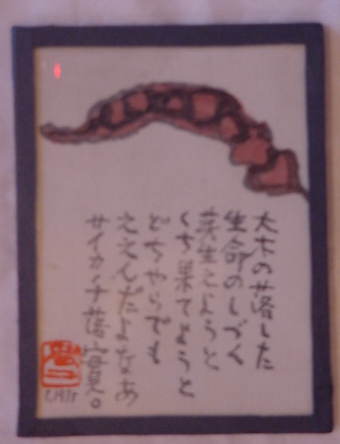 大木の落した
生命のしづく
芽生えようと
くち果てようと
どちらでも
ええんだよなあ
サイカチ落実。